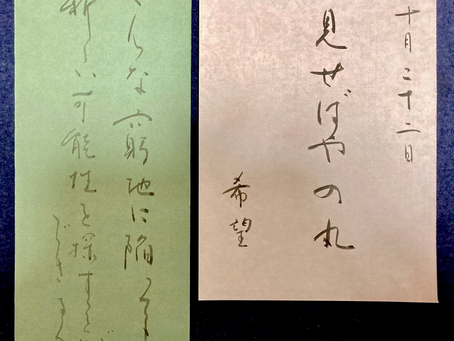 十月二十二日
見せばやの
希望
んな窮地に陥って
新しい可能性を探すこと
できる